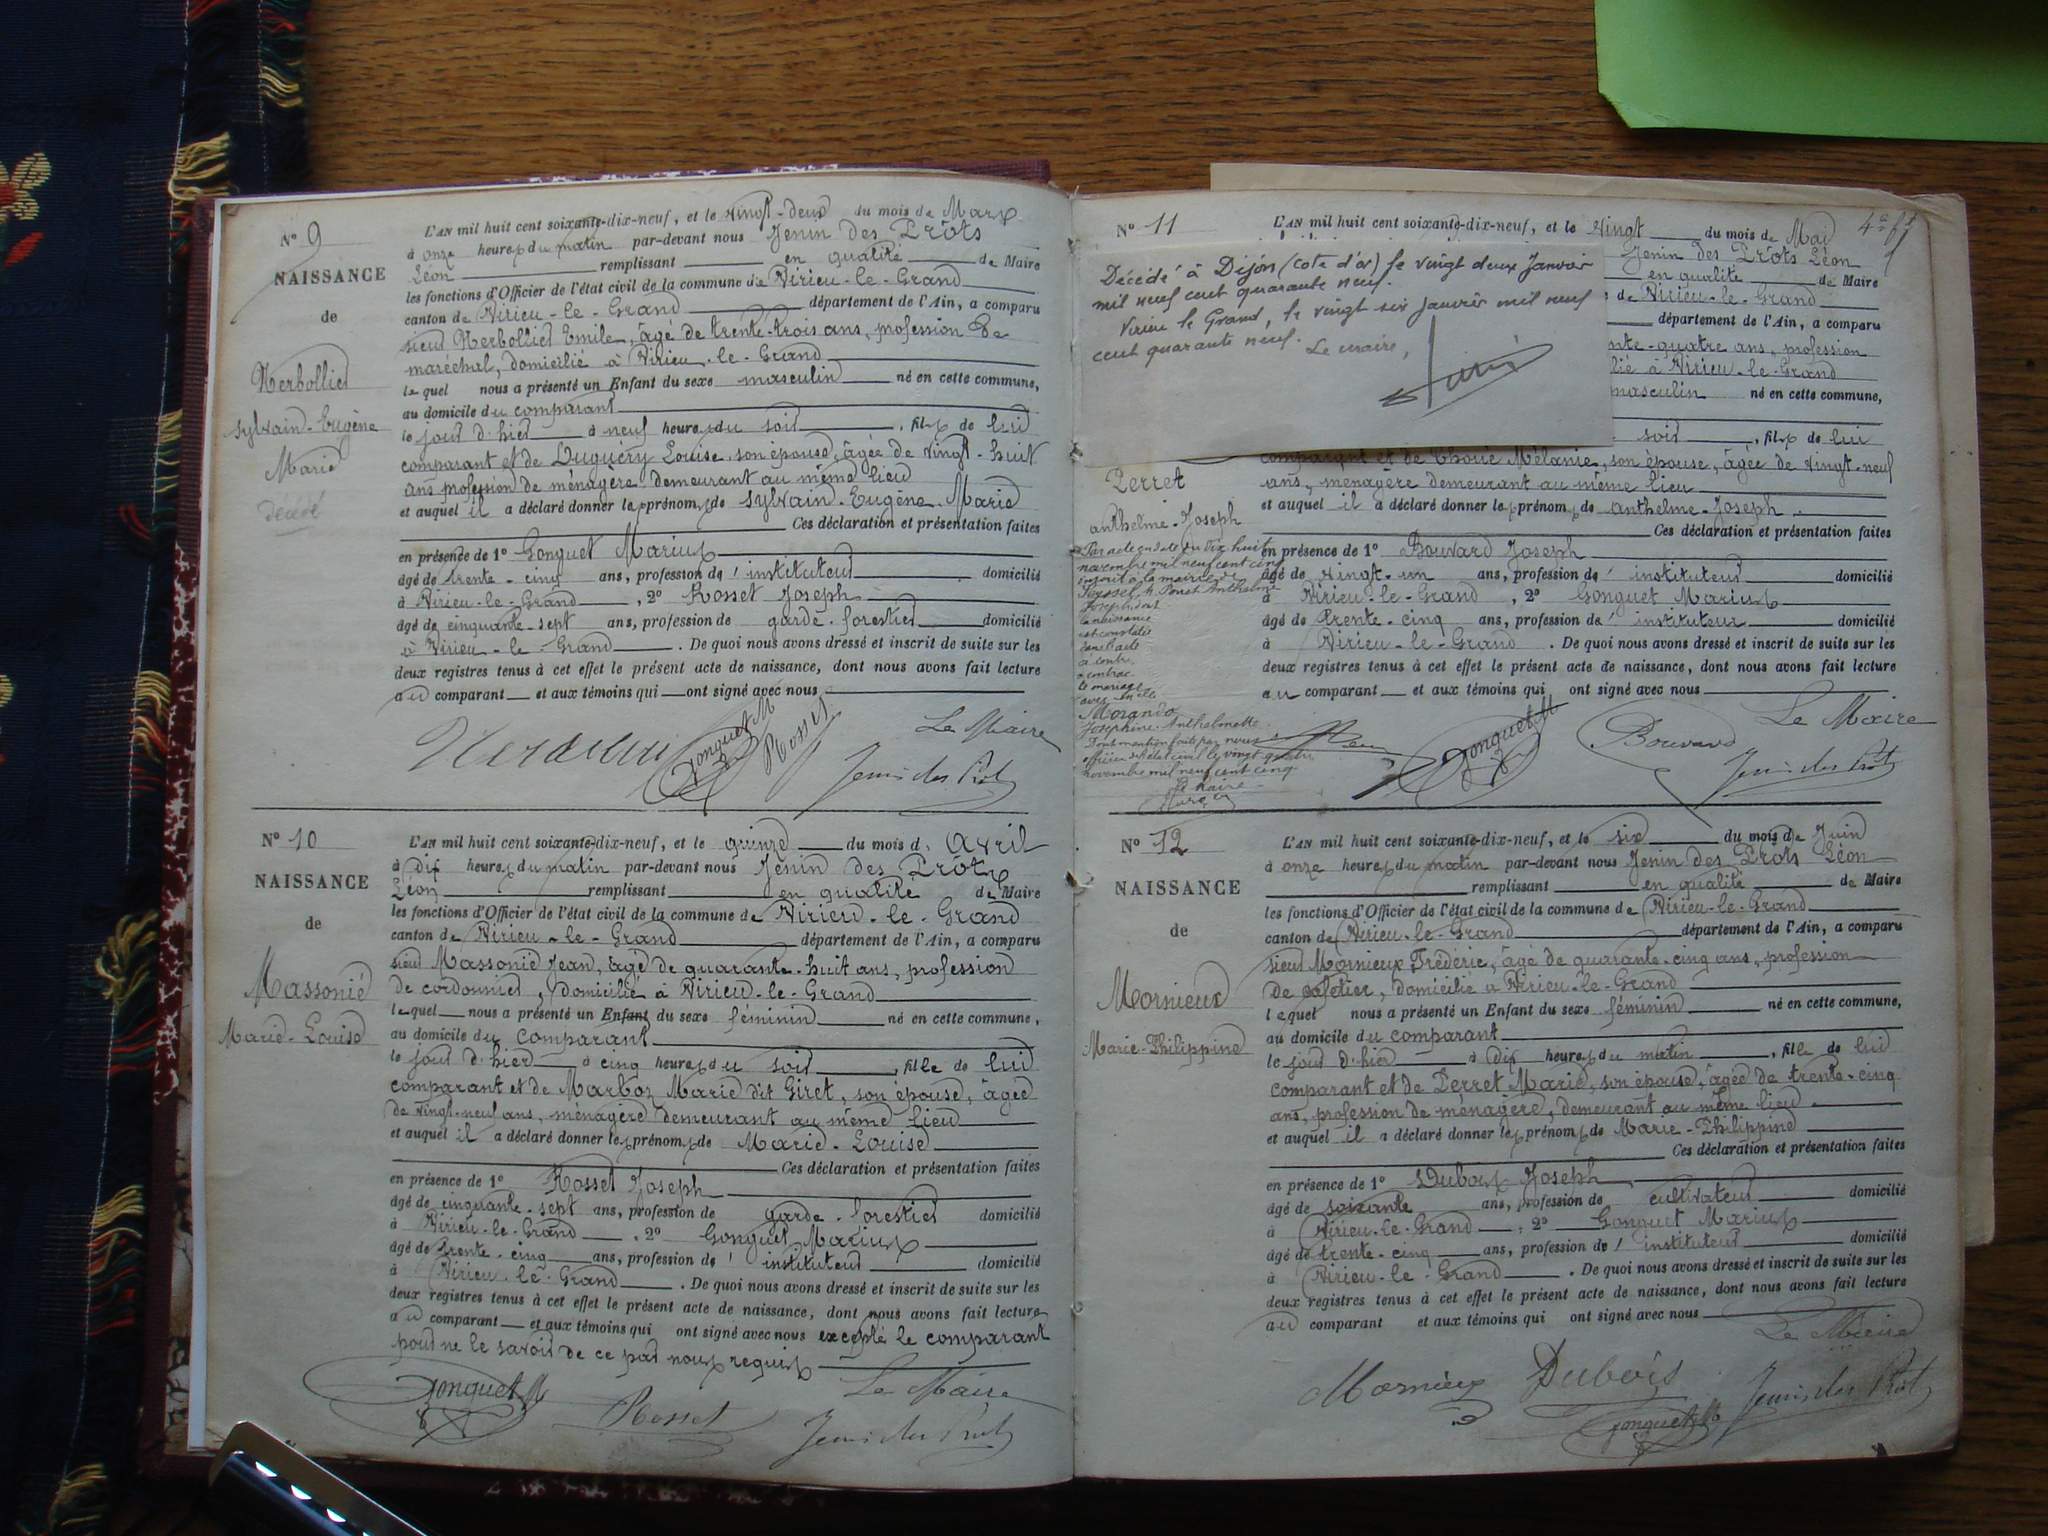 N° 9
NAISSANCE
de
Herbollier
Sylvain-Eugène
Marie
décédé
L'AN mil huit cent soixante-dix-neuf, et le vingt-deux du mois de Mars
à onze heures du matin par-devant nous Jenin des Prôts
Léon remplissant en qualité de Maire
les fonctions d'Officier de l'état civil de la commune de Virieu-le-Grand
canton de Virieu-le-Grand département de l'Ain, a comparu
sieur Herbollier Emile, âgé de trente-trois ans, profession de
maréchal, domicilié à Virieu-le-Grand
lequel nous a présenté un Enfant du sexe masculin né en cette commune,
au domicile du comparant
le jour d'hier à neuf heures du soir, fils de lui
comparant et de Duguéry Louise, son épouse, âgée de vingt-huit
ans profession de ménagère demeurant au même lieu
et auquel il a déclaré donner le prénom de Sylvain-Eugène-Marie
Ces déclaration et présentation faites
en présence de 1° Gonguet Marius
âgé de trente-cinq ans, profession d'instituteur domicilié
à Virieu-le-Grand, 2° Rosset Joseph
âgé de cinquante-sept ans, profession de garde-forestier domicilié
à Virieu-le-Grand. De quoi nous avons dressé et inscrit de suite sur les
deux registres tenus à cet effet le présent acte de naissance, dont nous avons fait lecture
au comparant et aux témoins qui ont signé avec nous
Gonguet M Rosset Le Maire
Jenin des Prôts
N° 10
NAISSANCE
de
Massonié
Marie-Louise
L'AN mil huit cent soixante-dix-neuf, et le quinze du mois d'Avril
à dix heures du matin par-devant nous Jenin des Prôts
Léon remplissant en qualité de Maire
les fonctions d'Officier de l'état civil de la commune de Virieu-le-Grand
canton de Virieu-le-Grand département de l'Ain, a comparu
sieur Massonié Jean, âgé de quarante-huit ans, profession
de cordonnier, domicilié à Virieu-le-Grand
lequel nous a présenté un Enfant du sexe féminin né en cette commune,
au domicile du comparant
le jour d'hier à cinq heures du soir, fille de lui
comparant et de Marboz Marie dit Giret, son épouse, âgée
de vingt-neuf ans, ménagère demeurant au même lieu
et auquel il a déclaré donner le prénom de Marie-Louise
Ces déclaration et présentation faites
en présence de 1° Rosset Joseph
âgé de cinquante-sept ans, profession de garde-forestier domicilié
à Virieu-le-Grand, 2° Gonguet Marius
âgé de trente-cinq ans, profession d'instituteur domicilié
à Virieu-le-Grand. De quoi nous avons dressé et inscrit de suite sur les
deux registres tenus à cet effet le présent acte de naissance, dont nous avons fait lecture
au comparant et aux témoins qui ont signé avec nous excepté le comparant
pour ne le savoir de ce par nous requis
Gonguet M Rosset Le Maire
Jenin des Prôts
N° 11
L'AN mil huit cent soixante-dix-neuf, et le vingt du mois de Mai
Jenin des Prôts Léon
en qualité de Maire
de Virieu-le-Grand
département de l'Ain, a comparu
nte-quatre ans, profession
lié à Virieu-le-Grand
masculin né en cette commune,
soir, fils de lui
Décédé à Dijon (cote d'or) le vingt deux Janvier
mil neuf cent quarante neuf.
Virieu le Grand, le vingt six Janvier mil neuf
cent quarante neuf. Le maire,
Perret
Anthelme-Joseph
comparant et de Choue Mélanie, son épouse, âgée de vingt-neuf
ans, ménagère demeurant au même lieu
et auquel il a déclaré donner le prénom de Anthelme-Joseph
Ces déclaration et présentation faites
en présence de 1° Bouvard Joseph
âgé de vingt-un ans, profession d'instituteur domicilié
à Virieu-le-Grand, 2° Gonguet Marius
âgé de trente-cinq ans, profession d'instituteur domicilié
à Virieu-le-Grand. De quoi nous avons dressé et inscrit de suite sur les
deux registres tenus à cet effet le présent acte de naissance, dont nous avons fait lecture
au comparant et aux témoins qui ont signé avec nous
Par acte en date du dix huit
novembre mil neuf cent cinq
inscrit à la mairie de
Seyssel, Perret Anthelme
Joseph, dont
la naissance
est constatée
dans l'acte
ci contre
a contracté
le mariage
avec
Morando
Joséphine-Anthelmette
Dont mention faite par nous
officier de l'état civil le vingt quatre
novembre mil neuf cent cinq
Le Maire
Gonguet M Bouvard Le Maire
Jenin des Prôts
N° 12
NAISSANCE
de
Mornieux
Marie-Philippine
L'AN mil huit cent soixante-dix-neuf, et le six du mois de Juin
à onze heures du matin par-devant nous Jenin des Prôts Léon
remplissant en qualité de Maire
les fonctions d'Officier de l'état civil de la commune de Virieu-le-Grand
canton de Virieu-le-Grand département de l'Ain, a comparu
sieur Mornieux Frédéric, âgé de quarante-cinq ans, profession
de cafetier, domicilié à Virieu-le-Grand
lequel nous a présenté un Enfant du sexe féminin né en cette commune,
au domicile du comparant
le jour d'hier à dix heures du matin, fille de lui
comparant et de Perret Marie, son épouse, âgée de trente-cinq
ans, profession de ménagère, demeurant au même lieu
et auquel il a déclaré donner le prénom de Marie-Philippine
Ces déclaration et présentation faites
en présence de 1° Dubois Joseph
âgé de soixante ans, profession de cultivateur domicilié
à Virieu-le-Grand, 2° Gonguet Marius
âgé de trente-cinq ans, profession d'instituteur domicilié
à Virieu-le-Grand. De quoi nous avons dressé et inscrit de suite sur les
deux registres tenus à cet effet le présent acte de naissance, dont nous avons fait lecture
au comparant et aux témoins qui ont signé avec nous
Le Maire
Mornieux Dubois Jenin des Prôts
Gonguet M